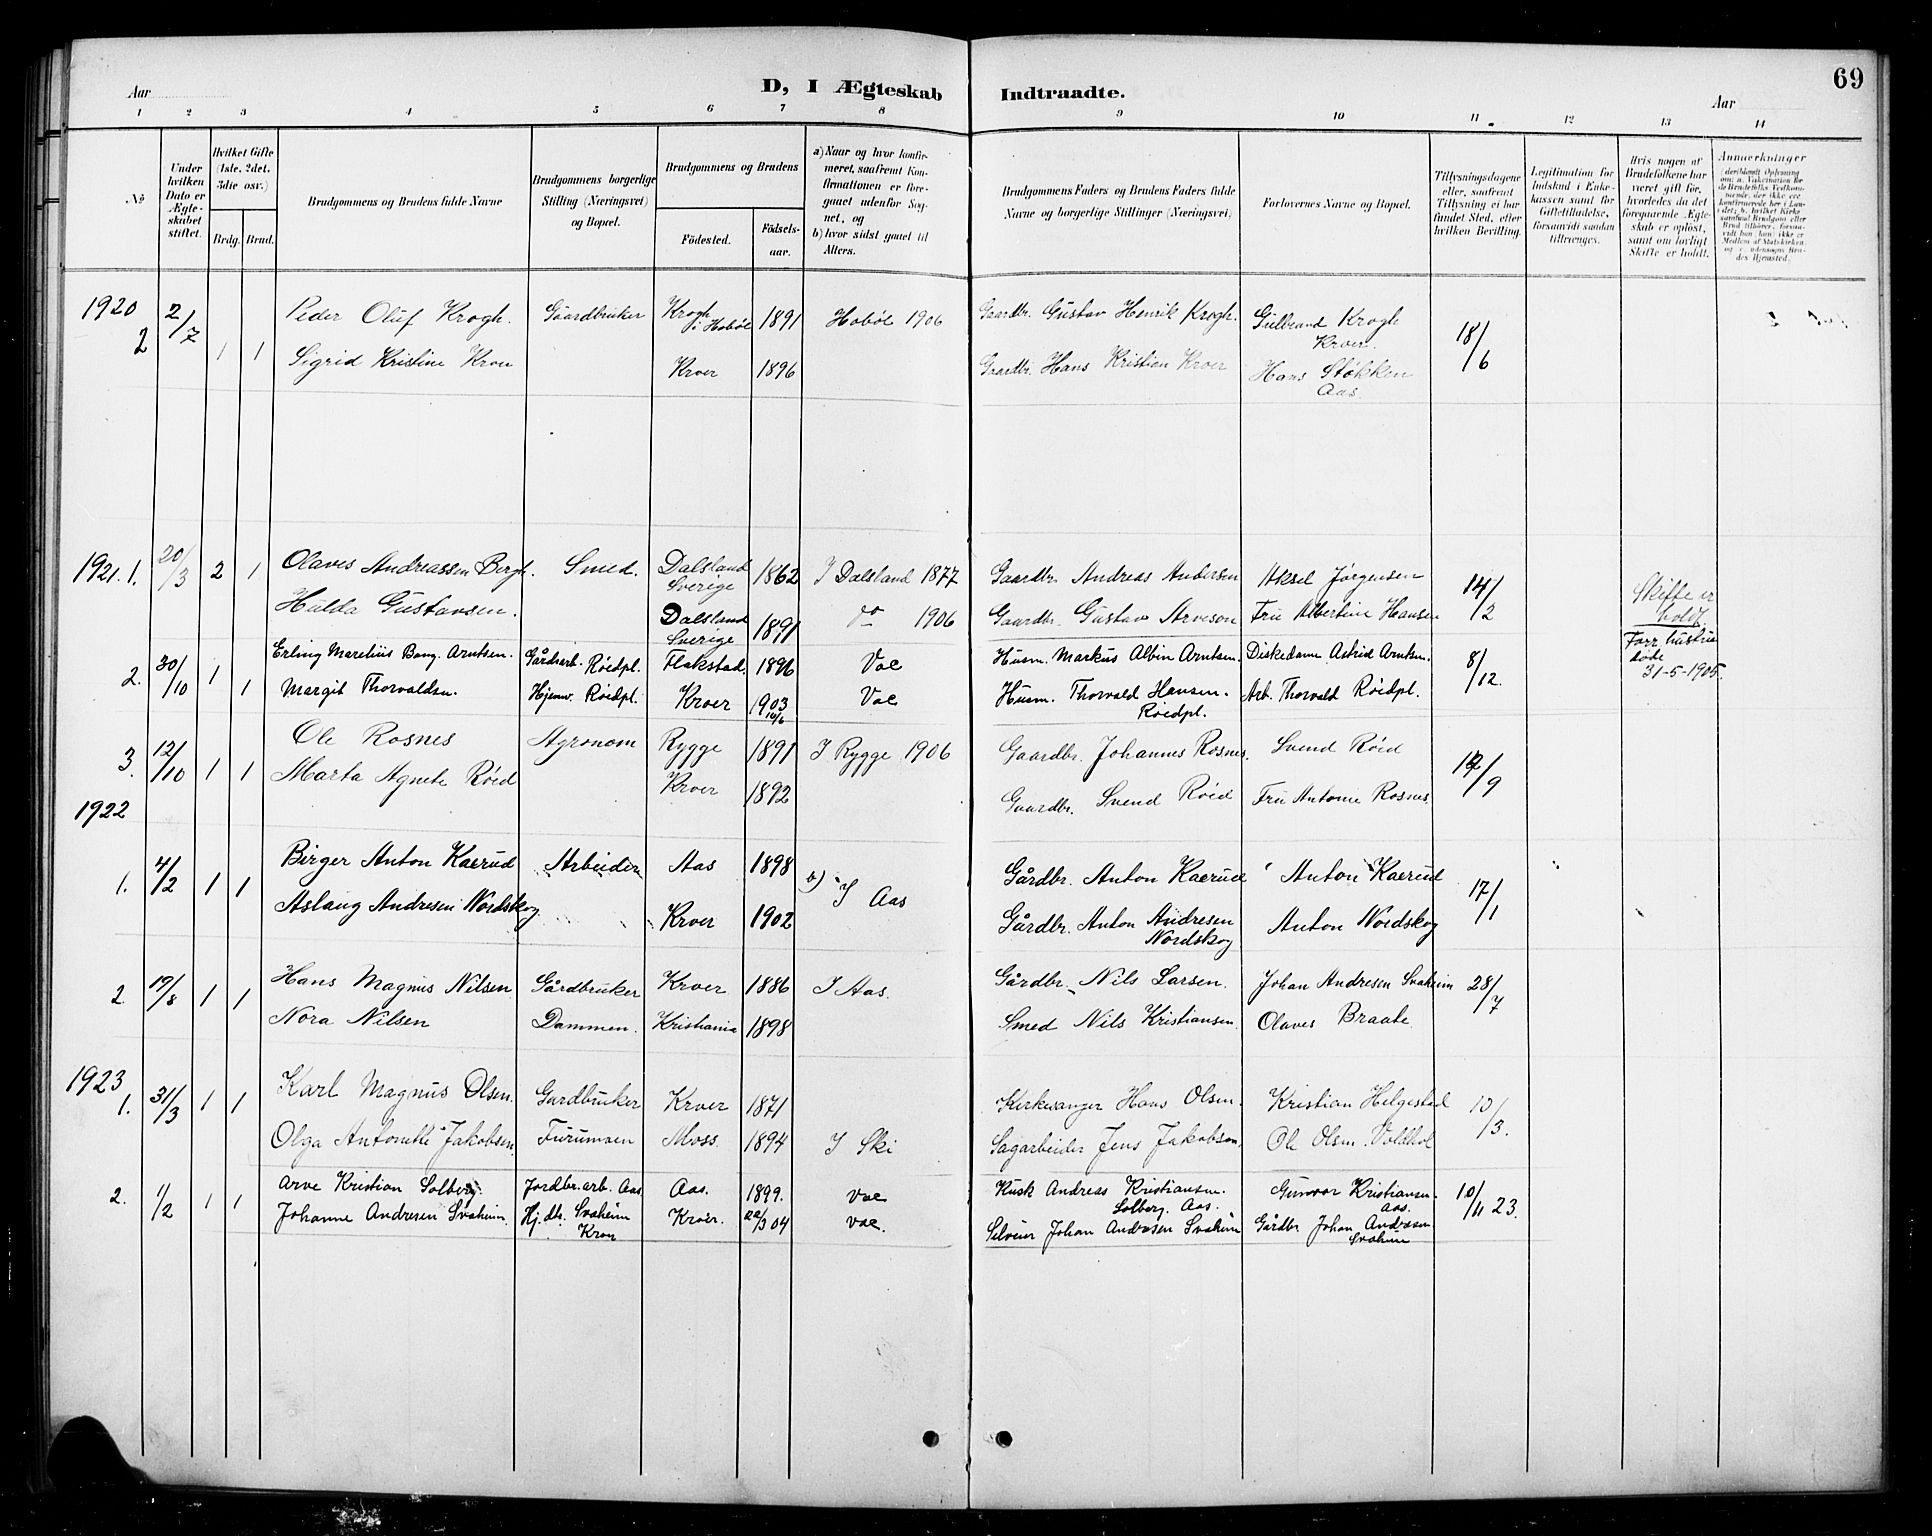 69
Aar D, I Ægteskab Indtraadte. Aar
1 2 3 4 5 6 7 8 9 10 11 12 13 14
No
Under hvilken Dato er Ægteskabet stiftet.
Hvilket Gifte (1ste, 2det, 3die osv.)
Brdg. Brud.
Brudgommens og Brudens fulde Navne
Brudgommens borgerlige Stilling (Næringsvei) og Bopæl.
Brudgommens og Brudens
Födested. Födselsaar.
a) Naar og hvor konfirmeret, saafremt Konfirmationen er foregaaet udenfor Sognet, og
b) hvor sidst gaaet til Alters.
Brudgommens Faders og Brudens Faders fulde Navne og borgerlige Stillinger (Næringsvei)
Forlovernes Navne og Bopæl.
Tillysningsdagene eller, saafremt Tillysning ei har fundet Sted, efter hvilken Bevilling.
Legitimation for Indskud i Enkekassen samt for Giftetilladelse, forsaavidt saadan tiltrenges.
Hvis nogen af Brudefolkene har været gift för, hvorledes da det foregaaende Ægteskab er oplöst, samt om lovligt Skifte er holdt.
Anmærkninger
1920 2 2/7 1 1 Peder Oluf Krogh. Gaardbruker Krogh i Hobøl 1891 Hobøl 1906 Gaardbr. Gustav Henrik Krogh. Gulbrand Krogh Kroer. 18/6
Sigrid Kristine Kroer Kroer 1896 Gaardbr. Hans Kristian Kroer Hans Støkken Aas.
1921. 1. 20/3 2 1 Olaves Andreassen Bergh. Smed. Dalsland Sverige 1862 I Dalsland 1877 Gaardbr. Andreas Andersen Aksel Jørgensen 14/2 Skifte er holdt
Hulda Gustavsen. Dalsland Sverige 1891 do 1906 Gaardbr. Gustav Arveson Fru Albertine Hansen Forr. hustru døde 31-5-1905.
2. 30/10 1 1 Erling Marelius Bang. Arntsen. Gårdsarb. Røidpl. Flakstad. 1896 Vac Husm. Markus Albin Arntsen. Diskedame Astrid Arntsen. 8/12.
Margit Thorvaldsn. Hjemv. Røidpl. Kroer 1903 10/6 Vac Husm. Thorvald Hansen. Røidpl. Arb. Thorvald Røidpl.
3. 12/10 1 1 Ole Rosnes Agronom Rygge 1891 I Rygge 1906 Gaardbr. Johannes Rosnes. Svend Røid /9
Marta Agnete Røid Kroer 1892 Gaardbr. Svend Røid Fru Antonie Rosnes.
1922
1. 4/2 1 1 Birger Anton Kaerud Arbeider Aas 1898 b) I Aas Gårdbr. Anton Kaerud Anton Kaerud 17/1
Aslaug Andresen Nordskog Kroer 1902 Gårdbr. Anton Andresen Nordskog Anton Nordskog
2. 19/8 1 1 Hans Magnus Nilsen Gårdbruker Kroer 1886 I Aas. Gårdbr. Nils Larsen. Johan Andresen Svaheim 28/7
Nora Nilsen Dammen. Kristiania 1898 Smed Nils Kristiansen. Olaves Braate.
1923
1. 31/3 1 1 Karl Magnus Olsen. Gardbruker Kroer 1871 Kirkesanger Hans Olsen. Kristian Helgestad 10/3.
Olga Antonette Jakobsen. Furumoen Moss. 1894 I Ski Sagarbeider Jens Jakobsen. Ole Olsen. Voldhol
2. 1/2 1 1 Arve Kristian Solberg. Jordbr. arb. Aas. Aas. 1899. vac Kusk Andreas Kristiansen. Solberg. Aas. Gunvor Kristiansen. Aas. 10/11 23.
Johanne Andresen Svaheim. Hj. dtr. Svaheim Kroer Kroer. 22/3 04 vac. Selveier Johan Andresen Svaheim Gårdbr Johan Andresen Svaheim